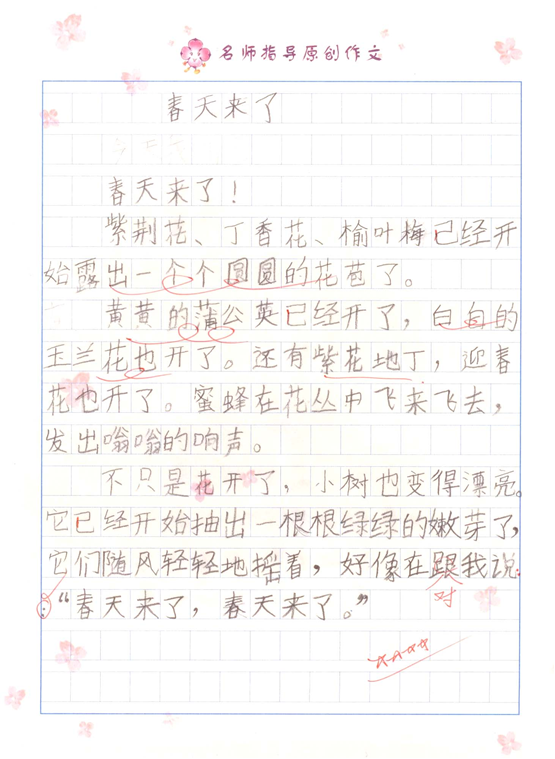 名师指导原创作文
春天来了
春天来了！
紫荆花、丁香花、榆叶梅已经开
始露出一个个圆圆的花苞了。
黄黄的蒲公英已经开了，白白的
玉兰花也开了。还有紫花地丁，迎春
花也开了。蜜蜂在花丛中飞来飞去，
发出嗡嗡的响声。
不只是花开了，小树也变得漂亮。
它已经开始抽出一根根绿绿的嫩芽了，
它们随风轻轻地摇着，好像在跟我说：
对
：“春天来了，春天来了。”